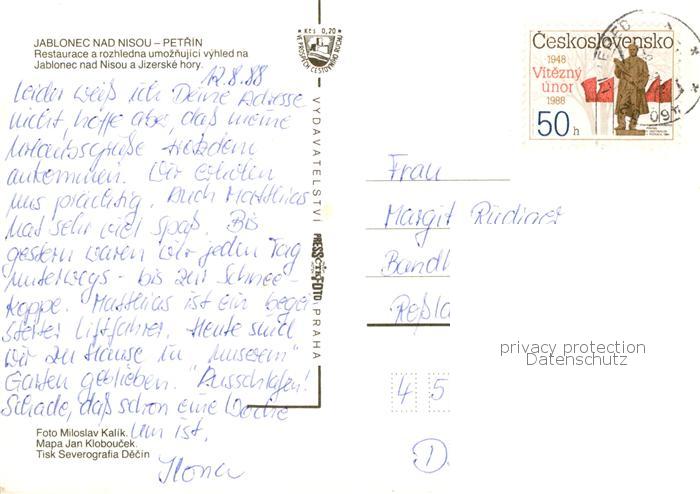 JABLONEC NAD NISOU – PETŘÍN
Restaurace a rozhledna umožňující výhled na
Jablonec nad Nisou a Jizerské hory.
12.8.88
Leider weiß ich Deine Adresse
nicht, hoffe aber, daß meine
Urlaubsgrüße trotzdem
ankommen. Wir erholen
uns prächtig. Auch Matthias
hat sehr viel Spaß. Bis
gestern waren wir jeden Tag
unterwegs - bis zur Schnee-
koppe. Matthias ist ein begei-
sterter Liftfahrer. Heute sind
wir zu Hause in "unserem"
Garten geblieben. "Ausschlafen!
Schade, daß schon eine Woche
um ist.
Ilona
Foto Miloslav Kalík.
Mapa Jan Klobouček.
Tisk Severografia Děčín
Kčs 0,20
VE PROSPĚCH CESTOVNÍHO RUCHU
VYDAVATELSTVÍ PRESSFOTO PRAHA
Československo
1948
Vítězný
únor
1988
50 h
Frau
Margit
Bandh
Reßla
4 5
D
privacy protection
Datenschutz